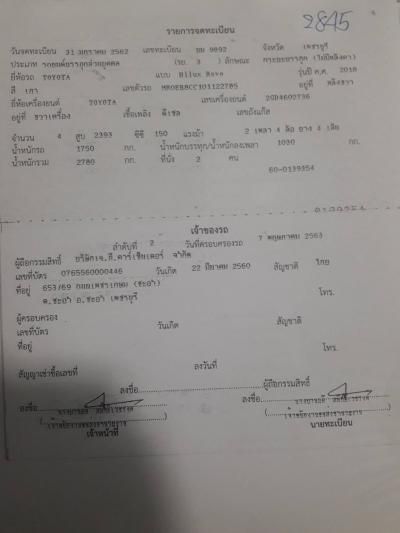 2845
รายการจดทะเบียน
วันจดทะเบียน 31 มกราคม 2562 เลขทะเบียน บม 9892 จังหวัด เพชรบุรี
ประเภท รถยนต์บรรทุกส่วนบุคคล (รย. 3 ) ลักษณะ กระบะบรรทุก (ไม่มีหลังคา)
ยี่ห้อรถ TOYOTA แบบ Hilux Revo รุ่นปี ค.ศ. 2018
สี เทา เลขตัวรถ MR0EB8CC101122785 อยู่ที่
ยี่ห้อเครื่องยนต์ TOYOTA เลขเครื่องยนต์ 2GD4602736
อยู่ที่ ขวาเครื่อง เชื้อเพลิง ดีเซล เลขถังแก๊ส
จำนวน 4 สูบ 2393 ซีซี 150 แรงม้า 2 เพลา 4 ล้อ ยาง 4 เส้น
น้ำหนักรถ 1750 กก. น้ำหนักบรรทุก/น้ำหนักลงเพลา 1030 กก.
น้ำหนักรวม 2780 กก. ที่นั่ง 2 คน
60-0139354
เจ้าของรถ
ลำดับที่ 2 วันที่ครอบครองรถ 7 พฤษภาคม 2563
ผู้ถือกรรมสิทธิ์ บริษัทเจ.ที.คาร์เซ็นเตอร์ จำกัด
เลขที่บัตร 0765560000446 วันเกิด 22 มีนาคม 2560 สัญชาติ ไทย
ที่อยู่ 653/69 ถนนเพชรเกษม (ชะอำ)
ต.ชะอำ อ.ชะอำ เพชรบุรี โทร.
ผู้ครอบครอง
เลขที่บัตร วันเกิด สัญชาติ
ที่อยู่ โทร.
สัญญาเช่าซื้อเลขที่ ลงวันที่
ลงชื่อ ผู้ถือกรรมสิทธิ์
ลงชื่อ ลงชื่อ
เจ้าหน้าที่ นายทะเบียน